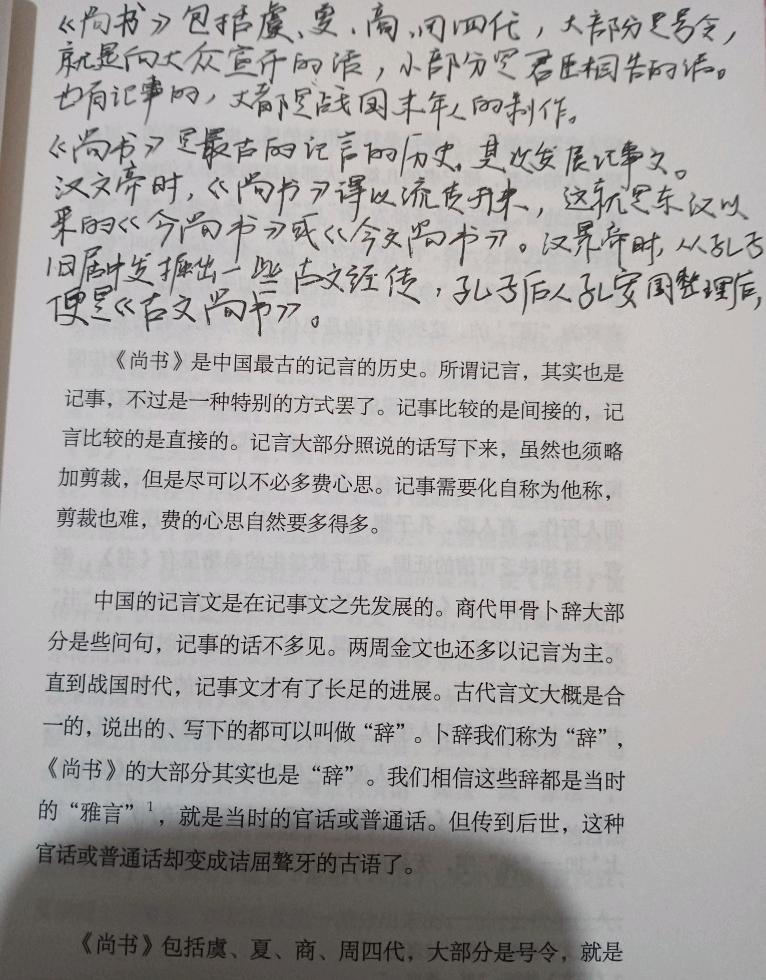 《尚书》包括虞、夏、商、周四代，大部分是号令，
就是向大众宣布的话，小部分是君臣相告的话。
也有记事的，大都是战国末年人的制作。
《尚书》是最古的记言的历史，其次发展记事文。
汉文帝时，《尚书》得以流传开来，这就是东汉以
来的《今尚书》或《今文尚书》。汉景帝时，从孔子
旧居中发掘出一些古文经传，孔子后人孔安国整理后，
便是《古文尚书》。
《尚书》是中国最古的记言的历史。所谓记言，其实也是
记事，不过是一种特别的方式罢了。记事比较的是间接的，记
言比较的是直接的。记言大部分照说的话写下来，虽然也须略
加剪裁，但是尽可以不必多费心思。记事需要化自称为他称，
剪裁也难，费的心思自然要多得多。
中国的记言文是在记事文之先发展的。商代甲骨卜辞大部
分是些问句，记事的话不多见。两周金文也还多以记言为主。
直到战国时代，记事文才有了长足的进展。古代言文大概是合
一的，说出的、写下的都可以叫做“辞”。卜辞我们称为“辞”，
《尚书》的大部分其实也是“辞”。我们相信这些辞都是当时
的“雅言”1，就是当时的官话或普通话。但传到后世，这种
官话或普通话却变成诘屈聱牙的古语了。
《尚书》包括虞、夏、商、周四代，大部分是号令，就是